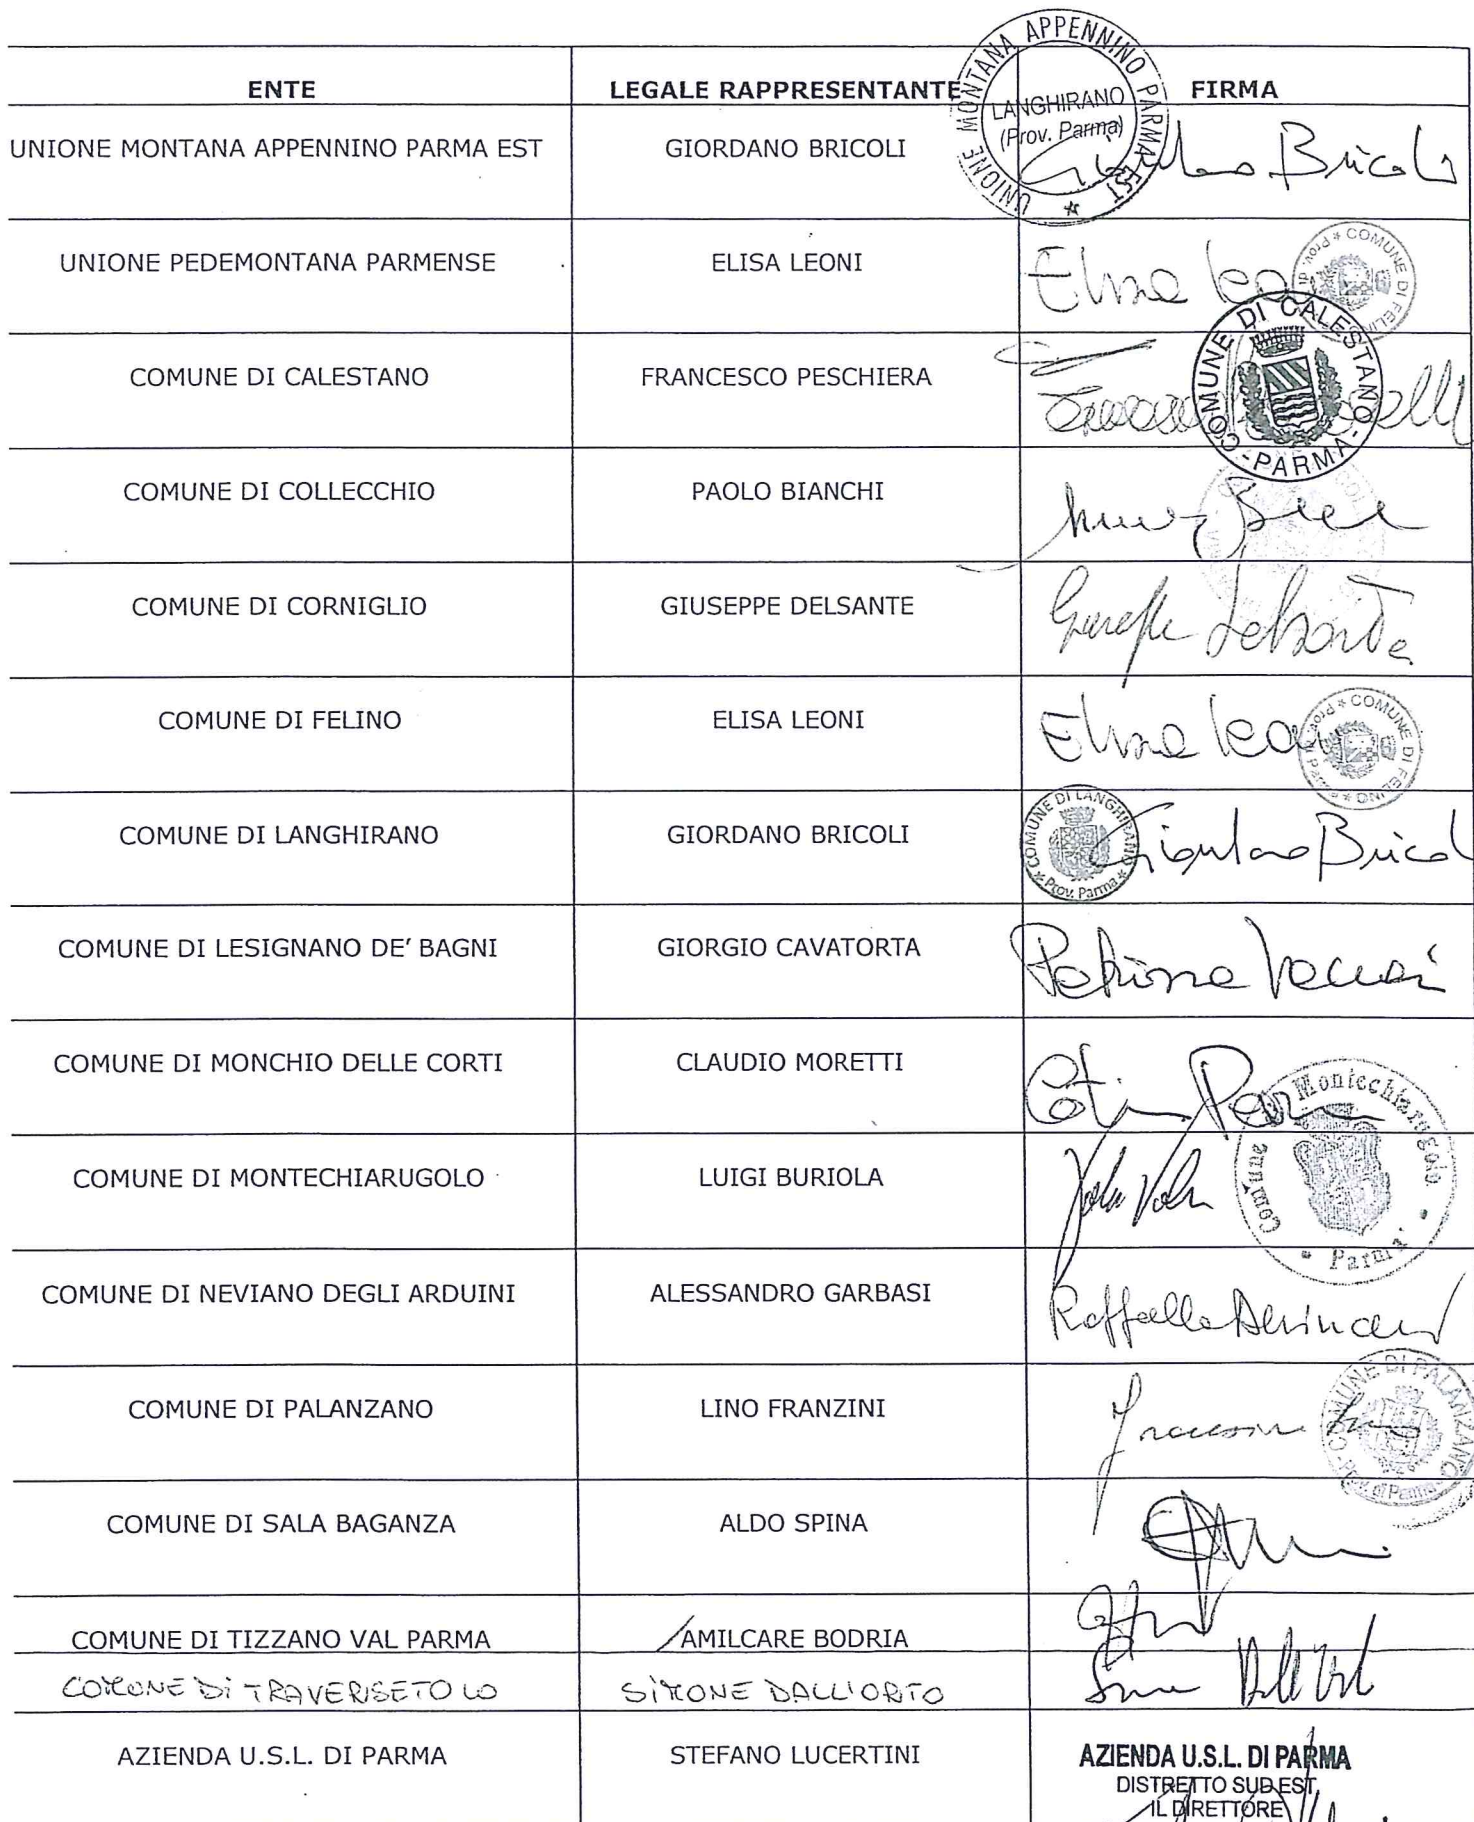 ENTE LEGALE RAPPRESENTANTE FIRMA
UNIONE MONTANA APPENNINO PARMA EST
LANGHIRANO
(Prov. Parma)
UNIONE MONTANA APPENNINO PARMA EST GIORDANO BRICOLI Giordano Bricoli
UNIONE PEDEMONTANA PARMENSE ELISA LEONI Elisa Leoni
COMUNE DI FELINO Prov. di
COMUNE DI CALESTANO FRANCESCO PESCHIERA
COMUNE DI CALESTANO - PARMA -
COMUNE DI COLLECCHIO PAOLO BIANCHI
COMUNE DI CORNIGLIO GIUSEPPE DELSANTE Giuseppe Delsante
COMUNE DI FELINO ELISA LEONI Elisa Leoni
COMUNE DI FELINO Prov. di Parma
COMUNE DI LANGHIRANO GIORDANO BRICOLI Giordano Bricol
COMUNE DI LANGHIRANO Prov. Parma
COMUNE DI LESIGNANO DE' BAGNI GIORGIO CAVATORTA
COMUNE DI MONCHIO DELLE CORTI CLAUDIO MORETTI
Comune Montechiarugolo Parma
COMUNE DI MONTECHIARUGOLO LUIGI BURIOLA
COMUNE DI NEVIANO DEGLI ARDUINI ALESSANDRO GARBASI Raffaella
COMUNE DI PALANZANO LINO FRANZINI
COMUNE DI PALANZANO Prov. di Parma
COMUNE DI SALA BAGANZA ALDO SPINA
COMUNE DI TIZZANO VAL PARMA AMILCARE BODRIA
COMUNE DI TRAVERSETOLO SIMONE DALL'ORTO
AZIENDA U.S.L. DI PARMA STEFANO LUCERTINI AZIENDA U.S.L. DI PARMA
DISTRETTO SUD EST
IL DIRETTORE